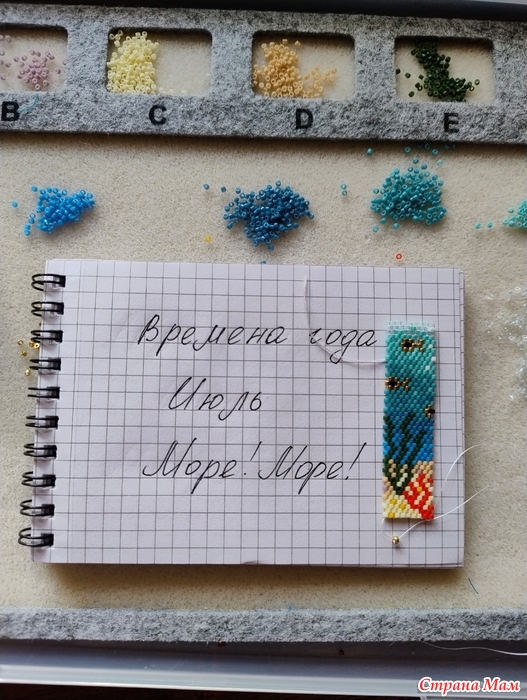 B
C
D
E
Времена года
Июль
Море! Море!
Страна Мам